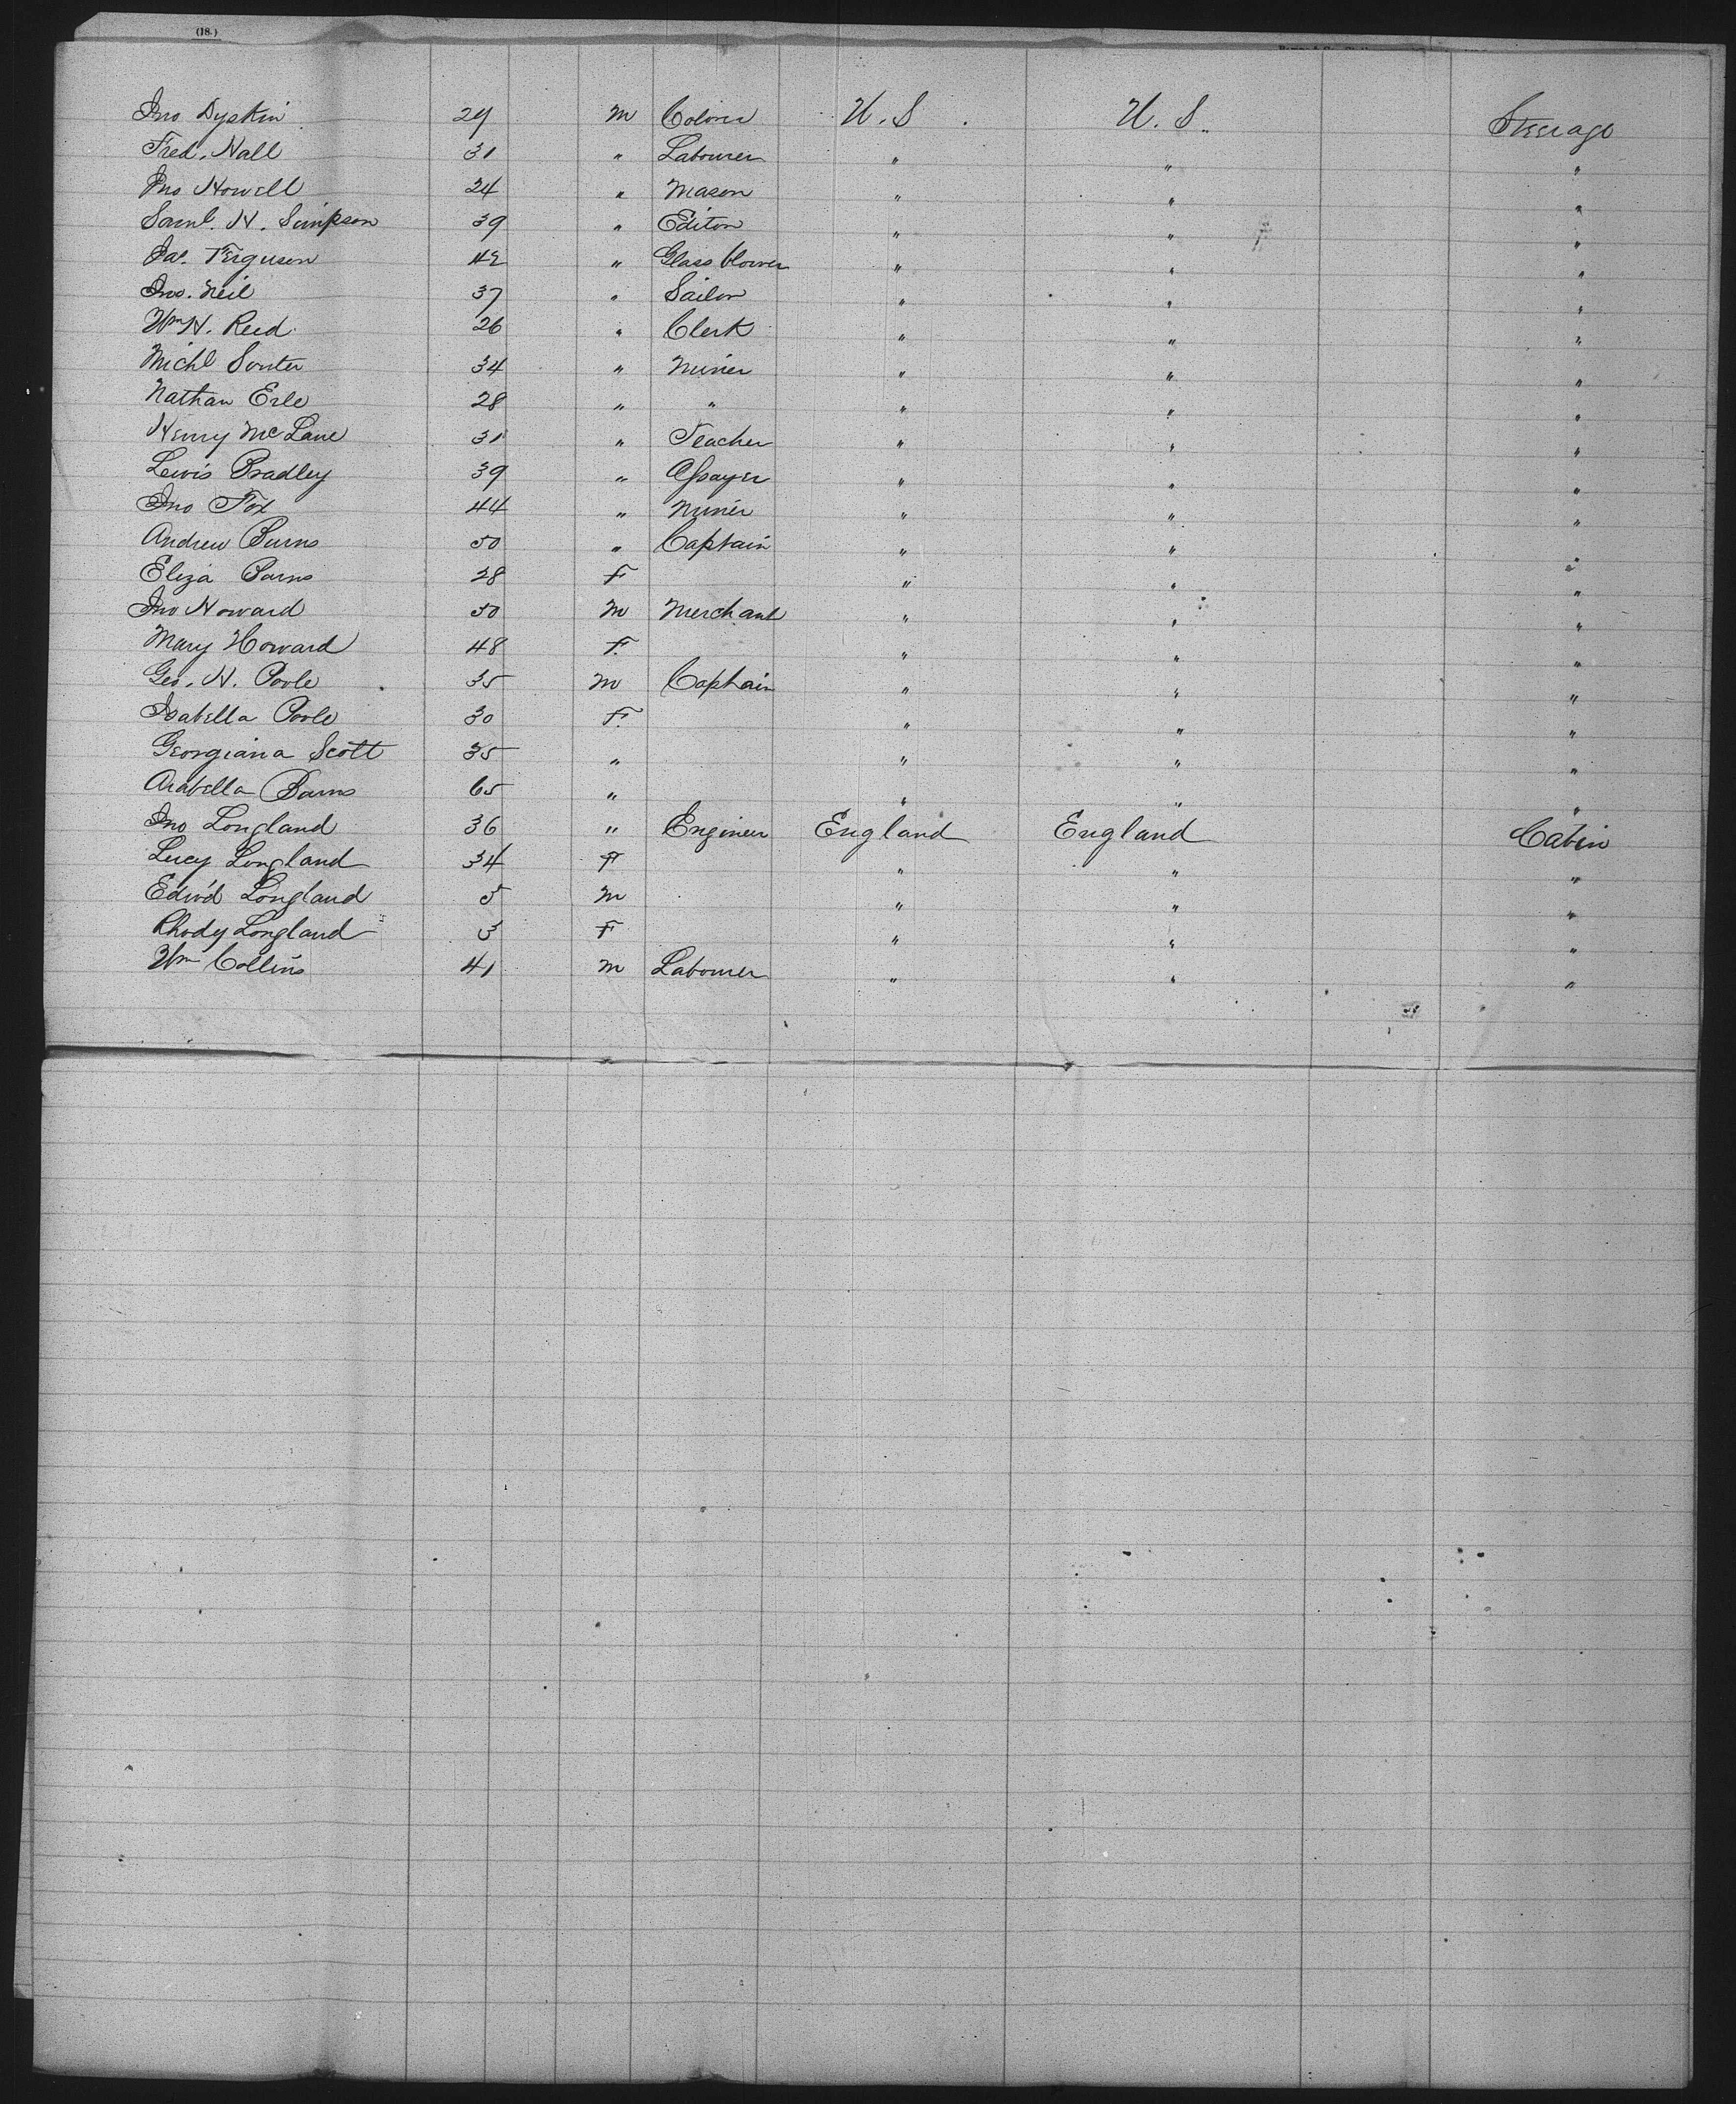 (18.)
Jno Dyskin 29 M U.S. U.S. Steerage
Fred. Hall 31 " Labourer " " "
Jno Howell 24 " Mason " " "
Saml. H. Simpson 39 " Editor " " "
Jas. Ferguson 42 " Glass blower " " "
Jno. Neil 37 " Sailor " " "
Wm H. Reed 26 " Clerk " " "
Michl Souter 34 " Miner " " "
Nathan Erle 28 " " " " "
Henry McLane 31 " Teacher " " "
Lewis Bradley 39 " Assayer " " "
Jno Fox 44 " Miner " " "
Andrew Burns 50 " Captain " " "
Eliza Barns 28 F " " "
Jno Howard 50 M Merchant " " "
Mary Howard 48 F. " " "
Geo. H. Poole 35 M Captain " " "
Isabella Poole 30 F. " " "
Georgiana Scott 35 " " " "
Arabella Barns 65 " " " "
Jno Longland 36 " Engineer England England Cabin
Lucy Longland 34 F " " "
Edwd Longland 5 M " " "
Rhody Longland 3 F " " "
Wm Collins 41 M Labourer " " "